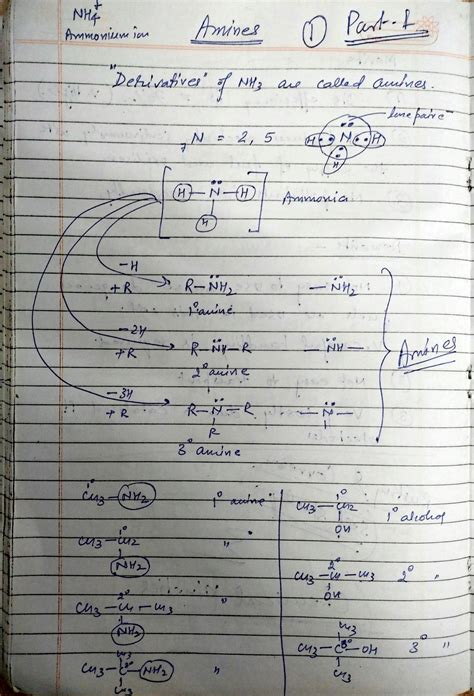 NH4+
Ammonium ion
Amines
① Part-1
"Derivatives" of NH3 are called amines.
lone paire
7N = 2, 5
H N H
H
[H-N-H]
H
Ammonia
-H
+R
R-NH2
-NH2
1° amine
-2H
+R
R-NH-R
-NH-
2° amine
-3H
+R
R-N-R
R
-N-
3° amine
Amines
CH3-NH2 1° amine
CH3-CH2 "
NH2
CH3-CH-CH3 "
2°
NH2
CH3
CH3-C-NH2 "
CH3
1°
CH3-CH2 1° alcohol
OH
2°
CH3-CH-CH3 2° "
OH
CH3
CH3-C-OH 3° "
CH3